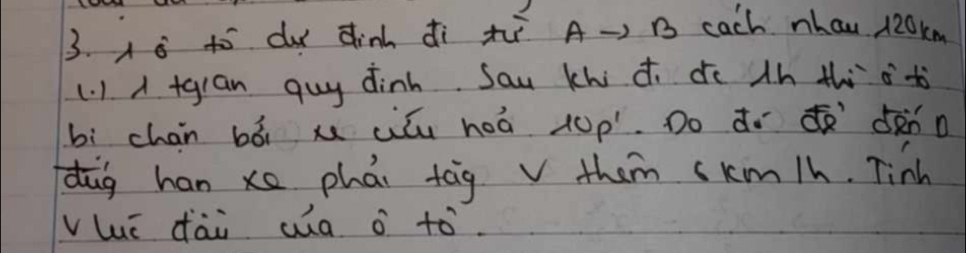 3. 1 ô tô dự định đi từ A -> B cách nhau 120km
(.) 1 tgian quy định. Sau khi đi đc 1h thì ô tô
bị chặn bởi xe cứu hoả 10p'. Do đó để đến B
đúg hạn xe phải tăg V thêm 6km/h. Tính
V lúc đầu của ô tô.